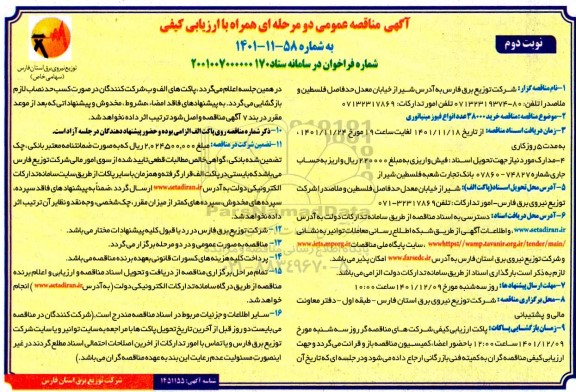 آگهی مناقصه عمومی دو مرحله ای همراه با ارزیابی کیفی
به شماره ۵۸-۱۱-۱۴۰۱
شماره فراخوان در سامانه ستاد ۲۰۰۱۰۰۷۰۰۰۰۰۰۱۷۰
نوبت دوم
توزیع نیروی برق استان فارس
(سهامی خاص)
۱- نام مناقصه گزار: شرکت توزیع برق فارس به آدرس شیراز خیابان معدل حدفاصل فلسطین و
ملاصدرا تلفن: ۸۰-۰۷۱۳۲۳۱۹۳۷۴ تلفن امور تدارکات: ۰۷۱۳۲۳۱۷۸۶۹
۲- موضوع مناقصه: مناقصه خرید ۳۸۰۰۰ عدد انواع فیوز مینیاتوری
۳- زمان دریافت اسناد مناقصه: از تاریخ ۱۴۰۱/۱۱/۱۸ لغایت ساعت ۱۹ مورخ ۱۴۰۱/۱۱/۲۴،
به مدت ۵ روز کاری
۴- مدارک مورد نیاز جهت تحویل اسناد: فیش واریزی به مبلغ ۲۲۰۰۰۰ ریال واریز به حساب
جاری شماره ۷۴۸۲۷-۰۷۸۶۰ بانک تجارت شعبه فلسطین شیراز
۵- آدرس محل تحویل اسناد (پاکت الف): شیراز خیابان معدل حدفاصل فلسطین و ملاصدرا شرکت
توزیع نیروی برق فارس- امور تدارکات تلفن: ۳۲۳۱۷۸۶۹-۰۷۱
۶- آدرس محل دریافت اسناد: دسترسی به اسناد مناقصه از طریق سامانه تدارکات دولت به آدرس
www.setadiran.ir، و اطلاعات آگهی از طریق شبکه اطلاع رسانی معاملات توانیر به نشانی
https://wamp.tavanir.org.ir/tender/main/، سایت پایگاه ملی مناقصات www.iets.mporg.ir
و شرکت توزیع نیروی برق استان فارس به آدرس www.farsedc.ir امکان پذیر می باشد.
لازم به ذکر است بارگذاری اسناد از طریق سامانه تدارکات دولت الزامی می باشد.
۷- مهلت ارسال پیشنهاد ها: روز سه شنبه مورخ ۱۴۰۱/۱۲/۰۹ ساعت ۱۰:۰۰
۸- محل برگزاری مناقصه: شرکت توزیع نیروی برق استان فارس - طبقه اول - دفتر معاونت
مالی و پشتیبانی
۹- زمان بازگشایی پاکات: پاکت ارزیابی کیفی شرکت های مناقصه گر روز سه شنبه مورخ
۱۴۰۱/۱۲/۰۹ ساعت ۱۲:۰۰ با حضور اعضا، کمیسیون مناقصه باز و قرائت می گردد و جهت
ارزیابی کیفی مناقصه گران به کمیته فنی بازرگانی ارجاع داده می شود و در جلسه ای که تاریخ آن
در همین جلسه اعلام می گردد، پاکت های الف و ب شرکت کنندگان در صورت کسب حد نصاب لازم
بازگشایی می گردد. به پیشنهادهای فاقد امضا، مشروط، مخدوش و پیشنهاداتی که بعد از موعد
مقرر در بند ۷ آگهی مناقصه واصل شود ترتیب اثر داده نخواهد شد.
۱۰- ذکر شماره مناقصه روی پاکت الف الزامی بوده و حضور پیشنهاد دهندگان در جلسه آزاد است.
۱۱- تضمین شرکت در مناقصه: مبلغ ۲,۰۲۴,۵۰۰,۰۰۰ ریال که به صورت ضمانتنامه معتبر بانکی، چک
تضمین شده بانکی، گواهی خالص مطالبات قطعی تایید شده از سوی امور مالی شرکت توزیع فارس
می باشد که بایستی در پاکت الف قرار گرفته و همزمان با سایر پاکات از طریق سایت سامانه تدارکات
الکترونیکی دولت به آدرس www.setadiran.ir ارسال گردد. ضمنا به پیشنهاد های فاقد سپرده،
سپرده های مخدوش، سپرده های کمتر از میزان مقرر، چک شخصی، وجه نقد و نظایر آن ترتیب اثر
داده نخواهد شد.
۱۲- شرکت توزیع برق فارس در رد یا قبول کلیه پیشنهادات مختار می باشد.
۱۳- مناقصه به صورت عمومی و در دو مرحله برگزار می گردد.
۱۴- پرداخت کلیه هزینه های کسورات قانونی بعهده برنده مناقصه می باشد.
۱۵- تمام مراحل برگزاری مناقصه از دریافت و تحویل اسناد مناقصه و ارزیابی و اعلام برنده
مناقصه از طریق درگاه سامانه تدارکات الکترونیکی دولت (به آدرس www.setadiran.ir) انجام
خواهد شد.
۱۶- سایر اطلاعات و جزئیات مربوط در اسناد مناقصه مندرج است. (شرکت کنندگان در مناقصه
می بایست دو روز قبل از آخرین تاریخ تحویل پاکت ها با مراجعه به سایت توانیر و یا سایت شرکت
توزیع برق فارس و یا تماس با امور تدارکات از آخرین اصلاحات احتمالی اسناد مطلع گردند در غیر
اینصورت مسئولیت عدم رعایت این بند به عهده مناقصه گران می باشد.)
شناسه آگهی: ۱۴۵۱۱۵۵
شرکت توزیع برق استان فارس